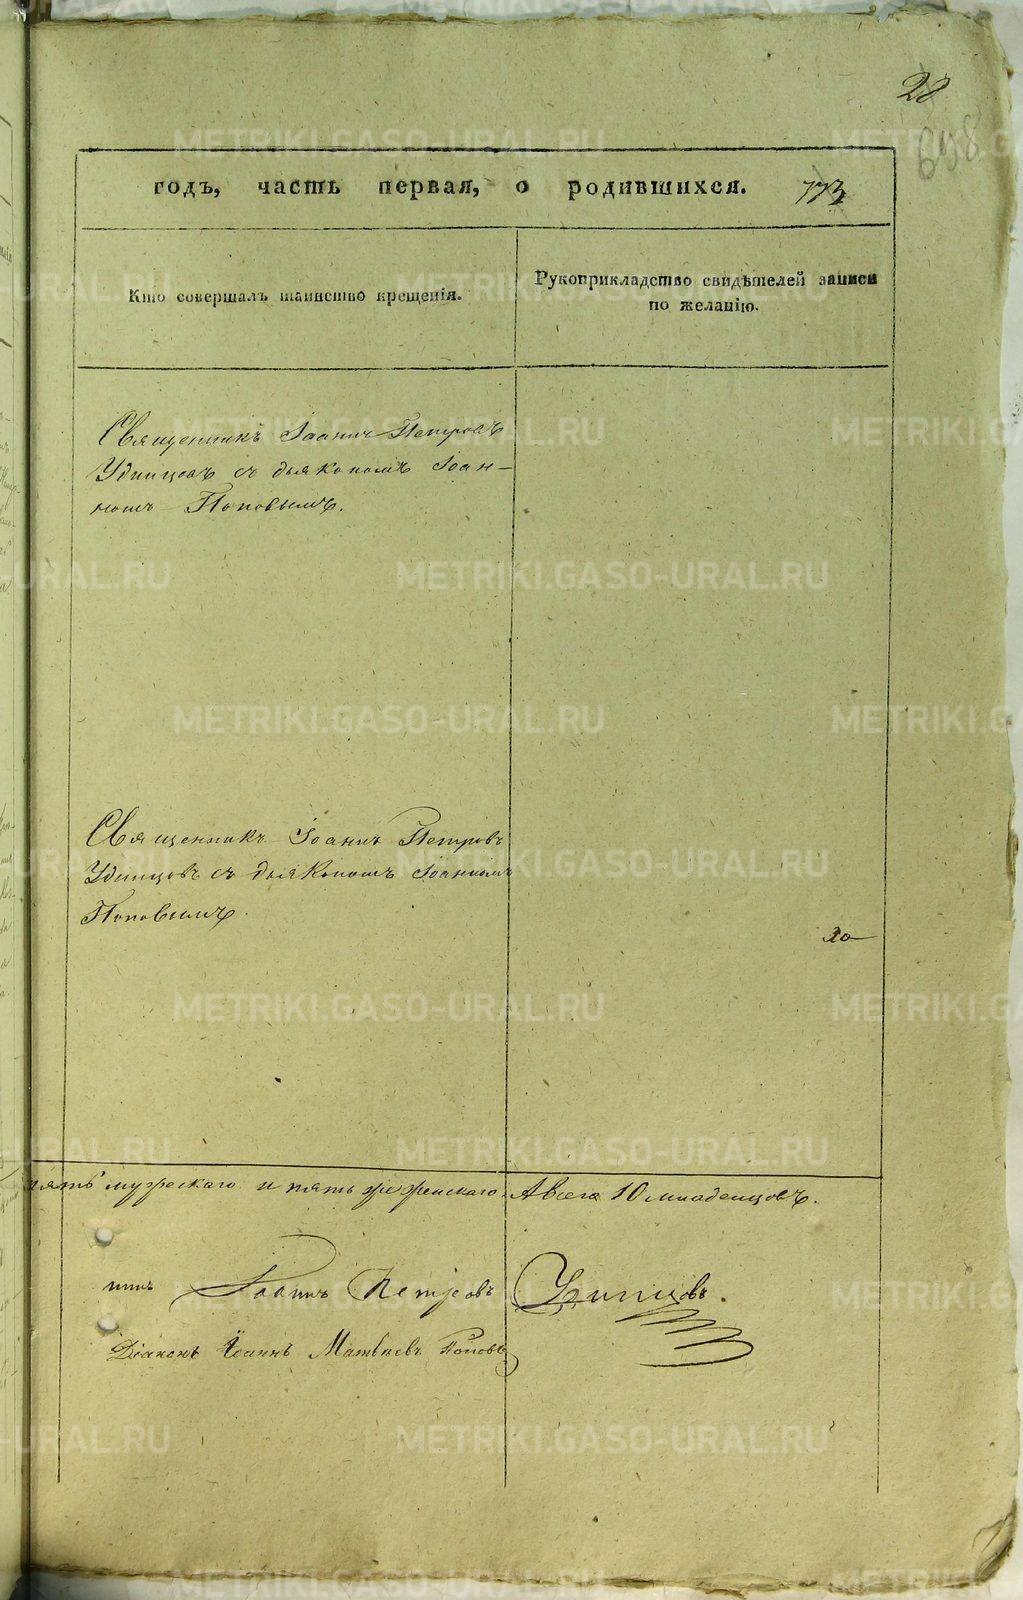 28
698
годъ, часть первая, о родившихся. 773
Кто совершалъ таинство крещенія.
Рукоприкладство свидѣтелей записи
по желанію.
Священникъ Іоаннъ Петровъ
Удинцовъ съ дьякономъ Іоан-
номъ Поповымъ.
Священникъ Іоаннъ Петровъ
Удинцовъ съ дьякономъ Іоанномъ
Поповымъ.
20
пять мужескаго и пять женскаго. А всего 10 младенцовъ.
никъ Іоаннъ Петровъ Удинцовъ.
Діаконъ Іоаннъ Матвѣевъ Поповъ
METRIKI.GASO-URAL.RU